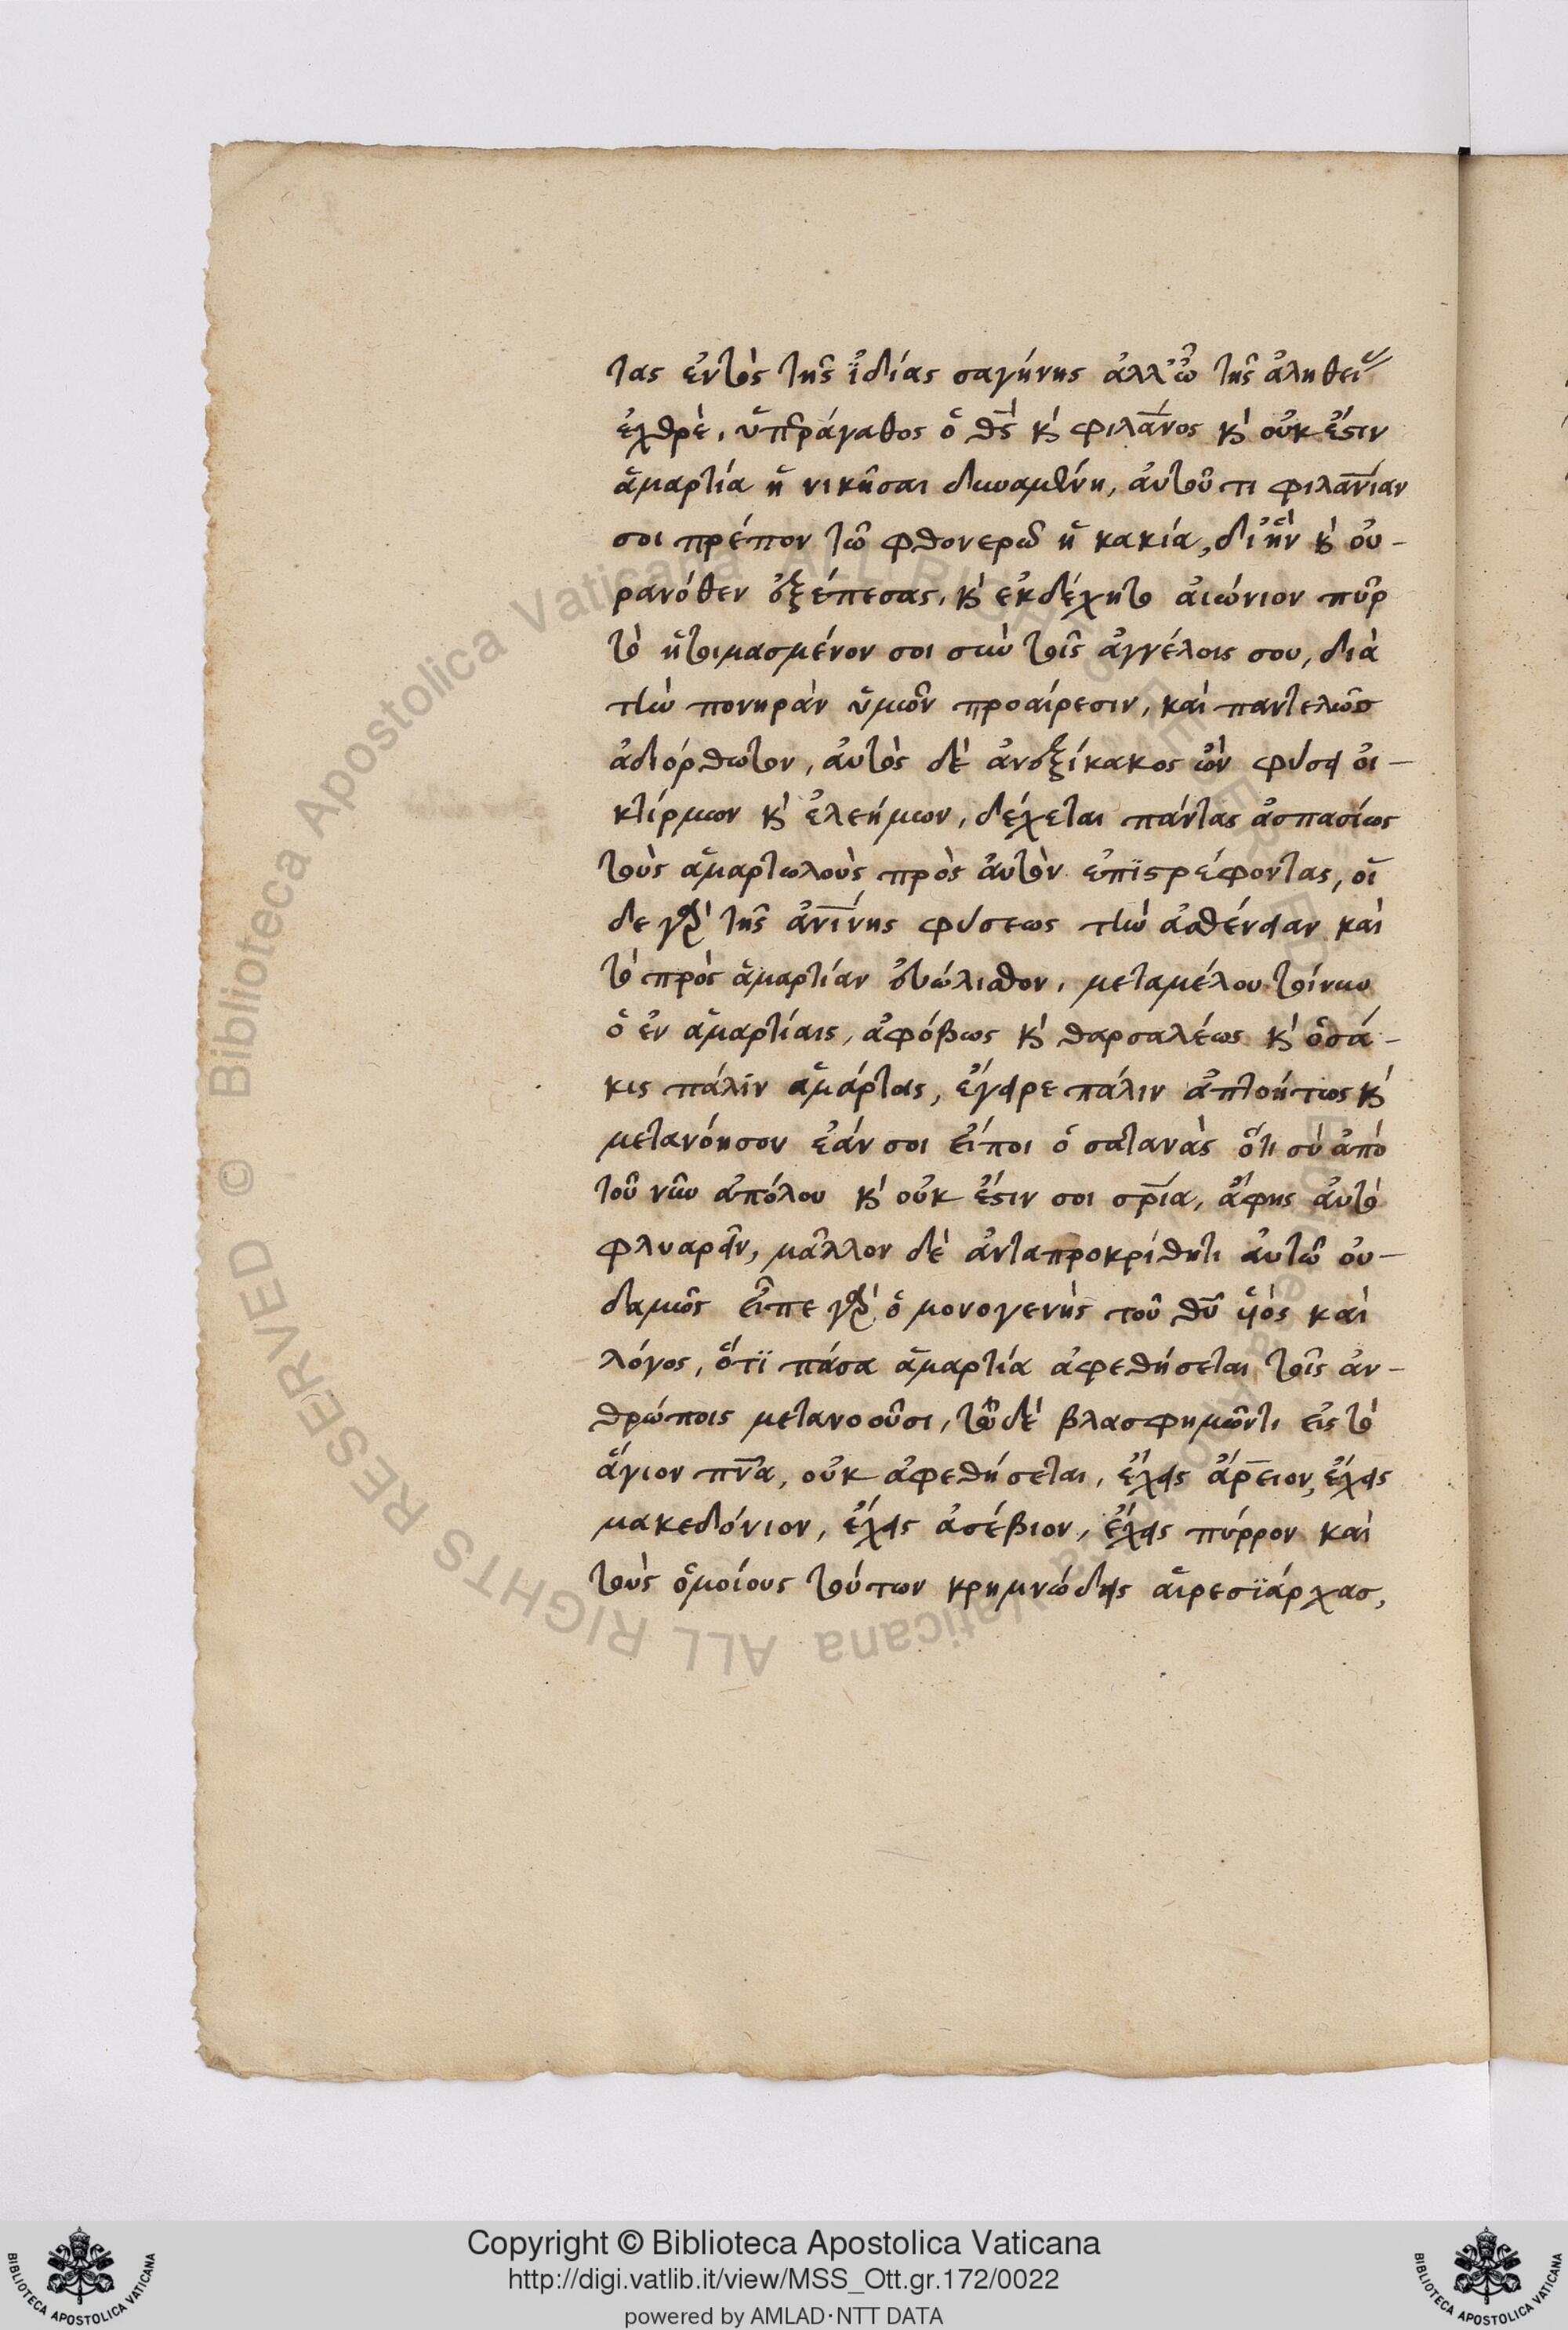 τας ἐντὸς τῆς ἰδίας σαγήνης ἀλλ' ὦ τῆς ἀληθείας
ἐχθρὲ, ὑπεράγαθος ὁ θς κ φιλανος κ οὐκ ἔστιν
ἁμαρτία ἡ νικῆσαι δυναμένη, αὐτοῦ τι φιλανίαν
σοι πρέπον τῶ φθονερῶ ἡ κακία, δι ἣν κ οὐ-
ρανόθεν ἐξέπεσας, κ ἐκδέχητο αἰώνιον πῦρ
τὸ ἡτοιμασμένον σοι σὺν τοῖς ἀγγέλοις σου, διὰ
τὴν πονηρὰν ὑμῶν προαίρεσιν, καὶ παντελῶς
ἀδιόρθωτον, αὐτὸς δὲ ἀνεξίκακος ὢν φύσει οἰ-
κτίρμων κ ἐλεήμων, δέχεται πάντας ἀσπασίως
τοὺς ἁμαρτωλοὺς πρὸς αὐτὸν ἐπιστρέφοντας, οἶ
δε γὰρ τῆς ἀνίνης φύσεως τὴν ἀσθένειαν καὶ
τὸ πρὸς ἁμαρτίαν εὐώλισθον, μεταμέλου τοίνυν
ὁ ἐν ἁμαρτίαις, ἀφόβως κ θαρσαλέως κ ὁσά-
κις πάλιν ἁμάρτας, ἔγειρε πάλιν ἀπτοήτως κ
μετανόησον ἐάν σοι εἴποι ὁ σατανὰς ὅτι σὺ ἀπὸ
τοῦ νῦν ἀπόλου κ οὐκ ἔστιν σοι σρία, ἄφης αὐτὸ
φλυαρεῖν, μᾶλλον δὲ ἀνταπροκρίθητι αὐτῶ οὐ-
δαμῶς εἶπε γὰρ ὁ μονογενὴς τοῦ θυ υἱός καὶ
λόγος, ὅτι πάσα ἁμαρτία ἀφεθήσεται τοῖς ἀν-
θρώποις μετανοοῦσι, τῶ δὲ βλασφημῶντι εἰς τὸ
ἅγιον πνα, οὐκ ἀφεθήσεται, ἔχεις ἄρειον, ἔχεις
μακεδόνιον, ἔχεις ἀσέβιον, ἔχεις πύρρον καὶ
τοὺς ὁμοίους τούτων κρημνώδεις αἱρεσϊάρχας,
Copyright © Biblioteca Apostolica Vaticana
http://digi.vatlib.it/view/MSS_Ott.gr.172/0022
powered by AMLAD·NTT DATA